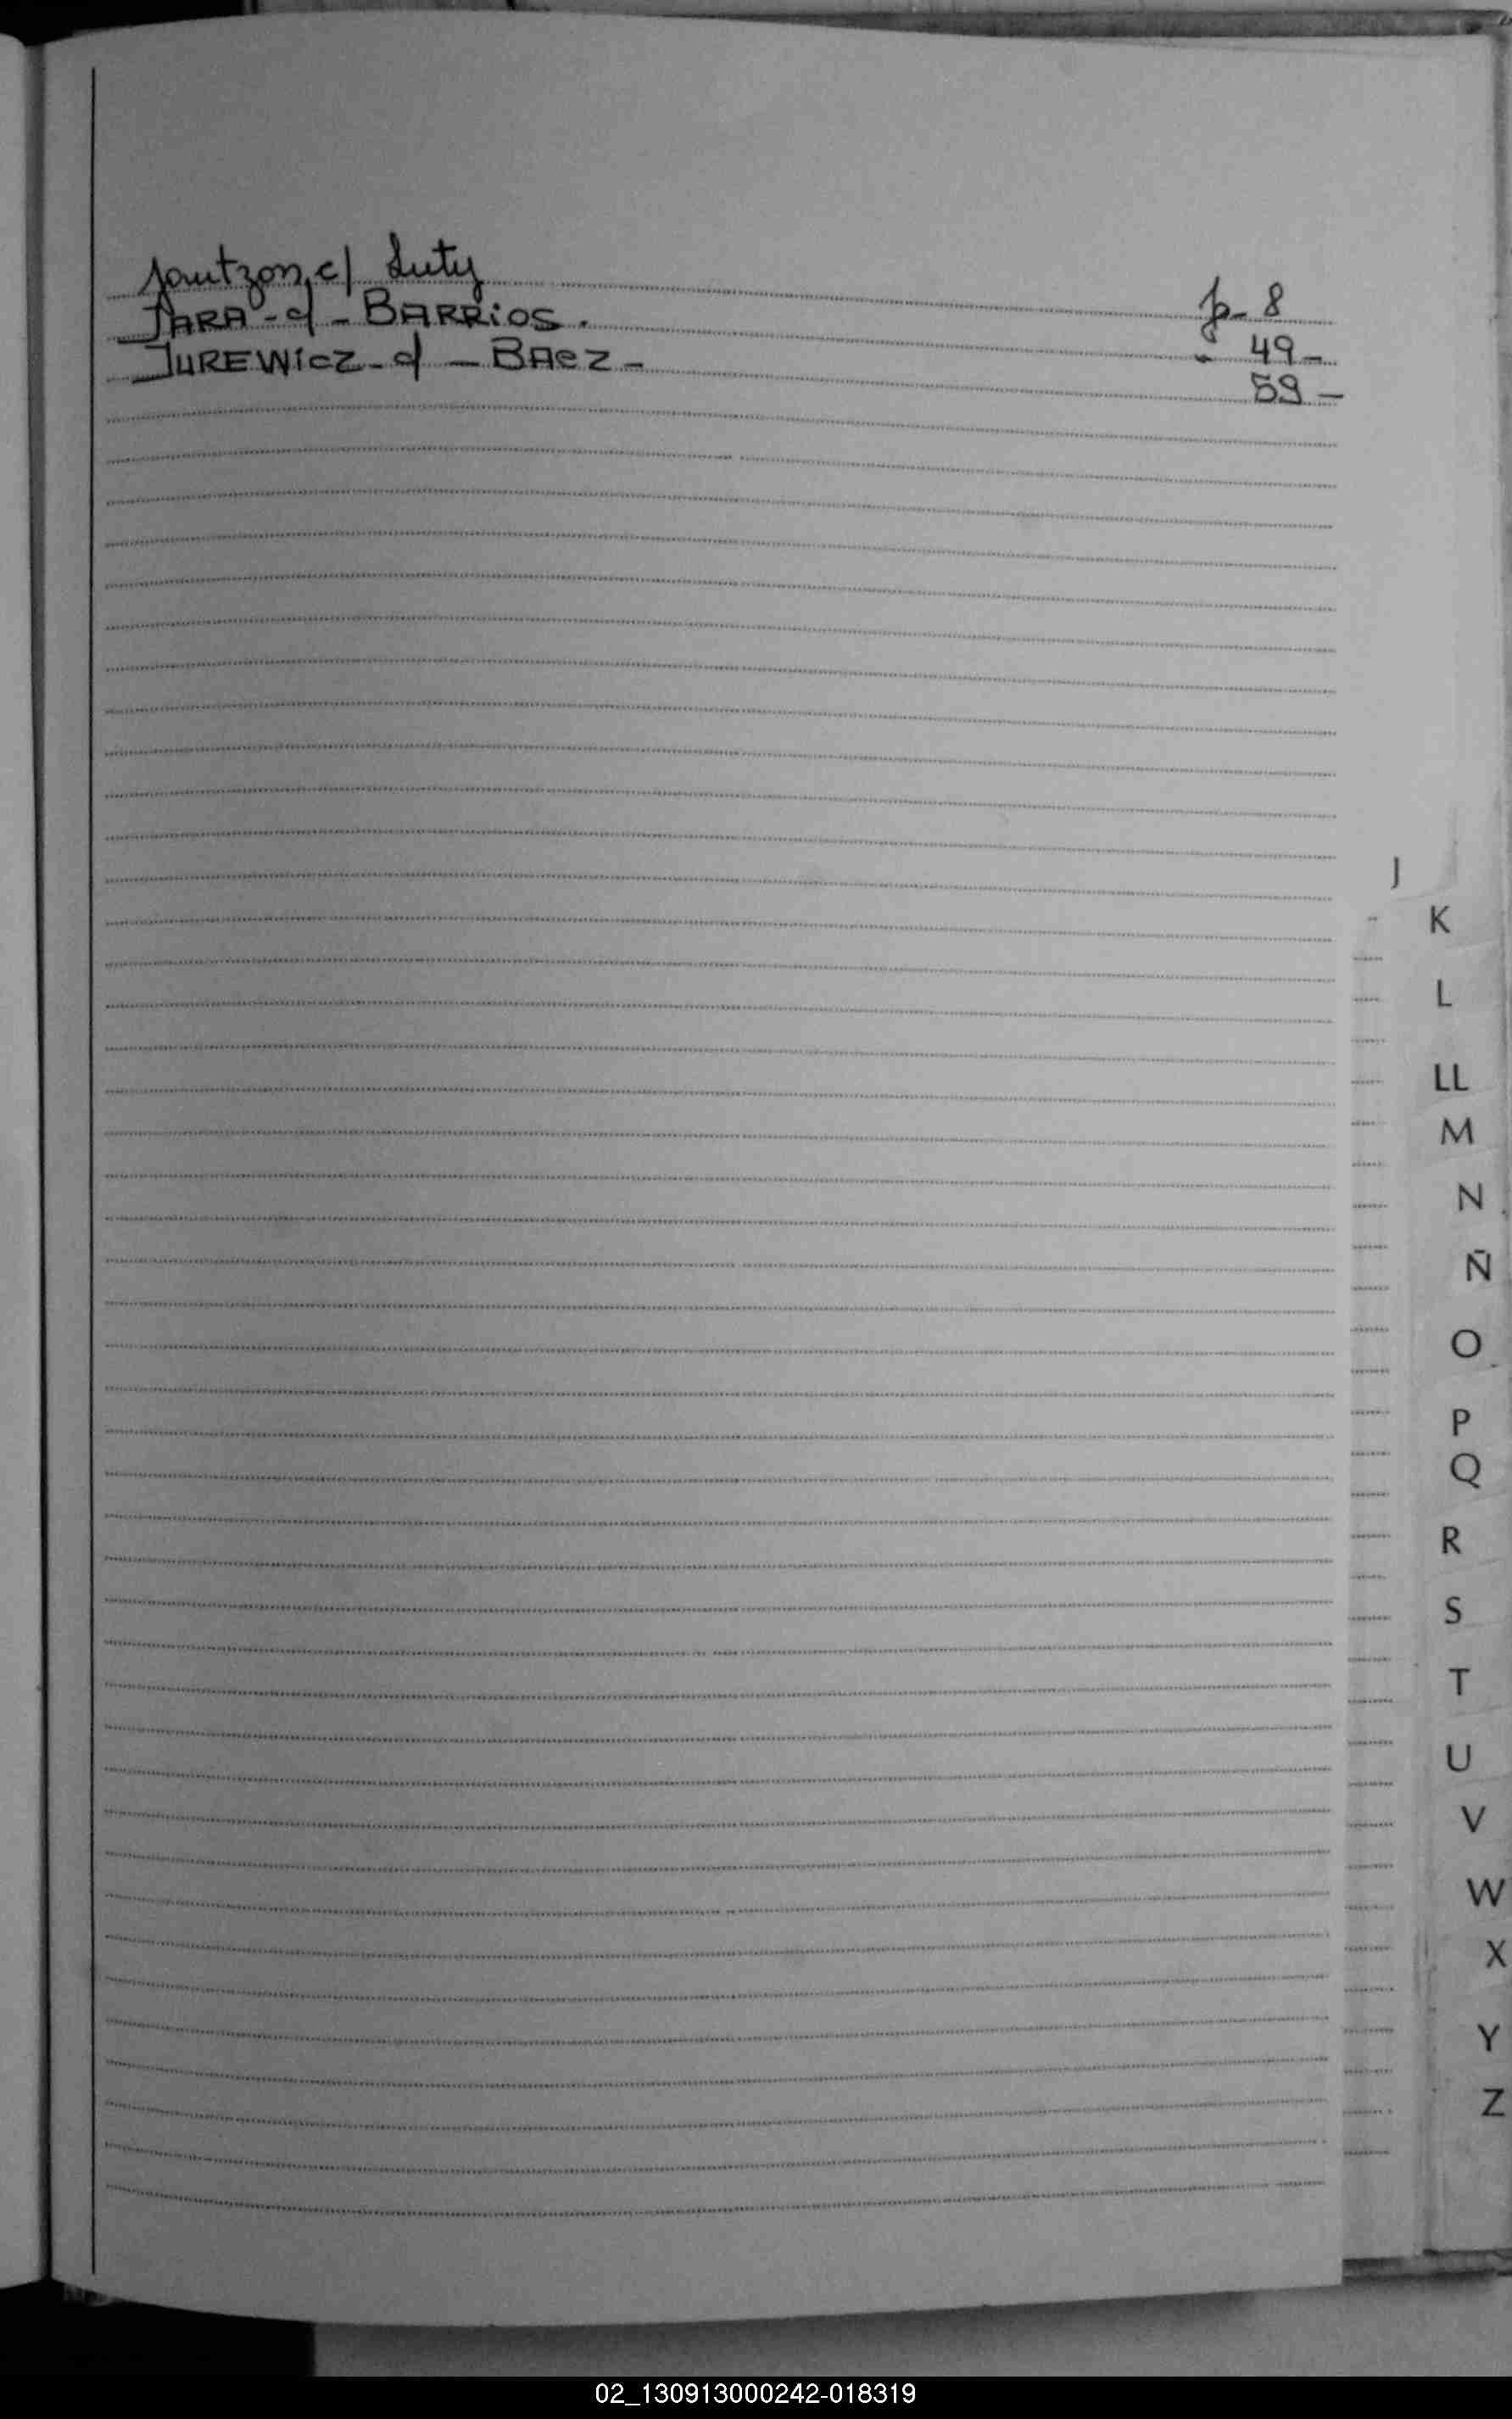 Jautzon c/ Luty p- 8
JARA - c/ - BARRiOS. " 49-
JUREWicZ - c/ - BAeZ - 59 -
J
K
L
LL
M
N
Ñ
O
P
Q
R
S
T
U
V
W
X
Y
Z
02_130913000242-018319